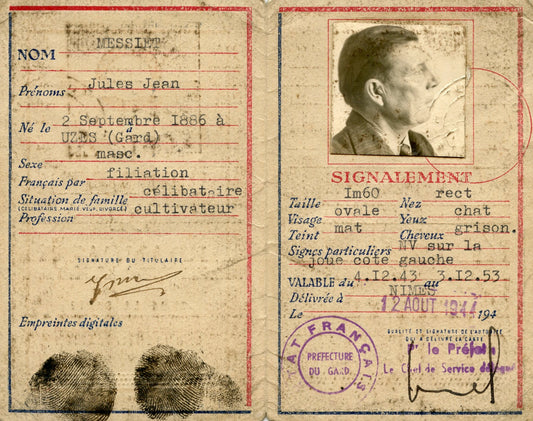 MESSIET
NOM
Jules Jean
Prénoms
2 Septembre 1886 à
Né le à
UZES (Gard)
masc.
Sexe
filiation
Français par
célibataire
Situation de famille
(CÉLIBATAIRE, MARIÉ, VEUF, DIVORCÉ)
cultivateur
Profession
SIGNATURE DU TITULAIRE
Empreintes digitales
SIGNALEMENT
Im60 rect
Taille Nez
ovale chat
Visage Yeux
mat grison.
Teint Cheveux
NV sur la
Signes particuliers
joue coté gauche
4.I2.43 3.I2.53
VALABLE du au
NIMES
Délivrée à
12 AOUT 1944
Le 194
QUALITÉ ET SIGNATURE DE L'AUTORITÉ
QUI A DÉLIVRÉ LA CARTE
Pr le Préfet
Le Chef de Service délégué
ETAT FRANÇAIS
PREFECTURE
DU GARD